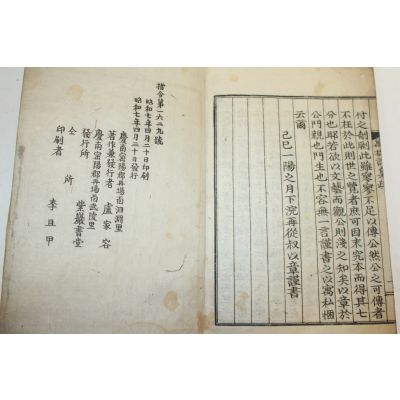 付之剞劂此雖寥寥不足以傳公然公之可傳者
不在於此則世之覽者庶可因末究本而得其七
分也耶若欲以文藝而觀公則淺之知矣以章於
公門親也門生也不容無一言謹書之以寓私悃
云爾
己巳一陽之月下浣再從叔以章謹書
指令第一六二九號
昭和七年四月二十日印刷
昭和七年四月三十日發行
慶南密陽郡丹場面泗淵里
著作兼發行者 盧家容
慶南密陽郡丹場面武陵里
發行所 紫巖書堂
仝所
印刷者 李且甲